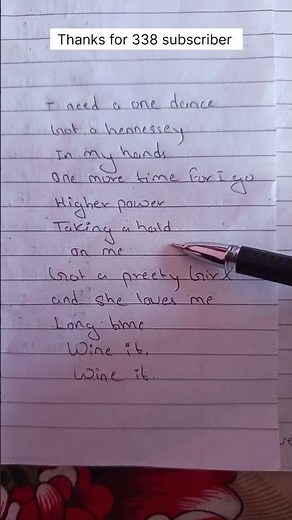 Thanks for 338 subscriber
I need a one dance
Got a hennessey
In my hands
One more time for i go
Higher power
Taking a hold
on me
Got a preety Girl
and she loves me
Long time
Wine it,
Wine it.